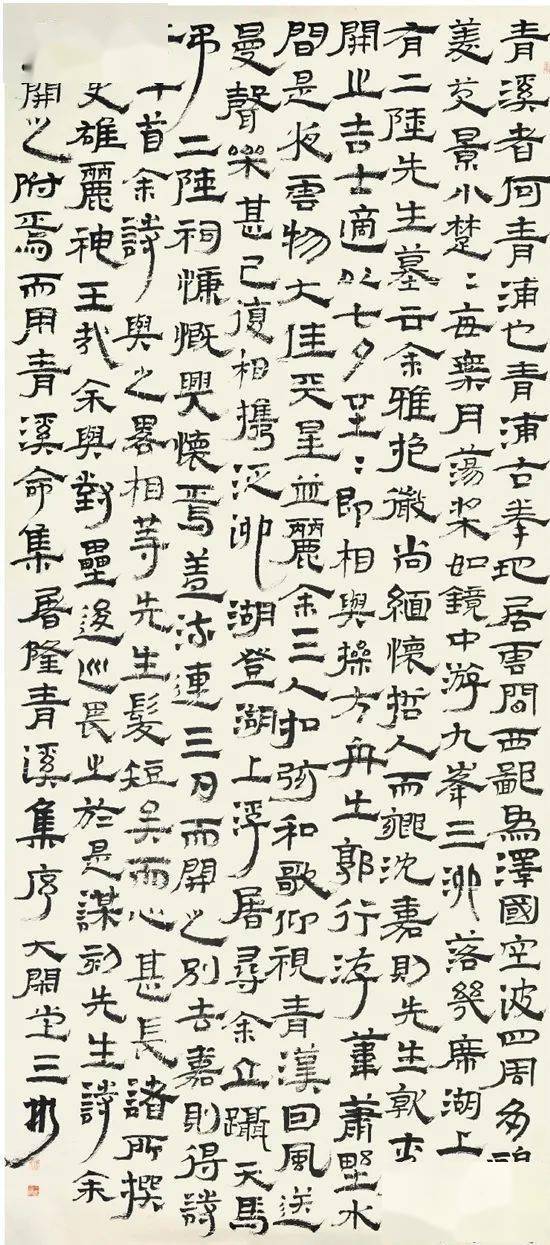 青溪者何青浦也青浦古拳地居雲間西鄙為澤國空波四周多
芰景小楚〻每乘月蕩槳如鏡中游九峯三泖落几席湖上
有二陸先生墓云余雅抱微尚緬懷哲人而鄉沈嘉則先生
開之吉士適以七夕至〻即相與操方舟出郭行游蕭蕭野水
間是夜雲物大佳天星並麗余三人扣舷和歌仰視青漢回風送
曼聲樂甚已復相攜泛泖湖登湖上浮屠尋余立躡天馬
弔二陸祠慷慨興懷焉蓋流連三月而開之別去嘉則得詩
十首余詩與之略相等先生髮短矣而心甚長諸所撰
更雄麗神王哉余與對壘逡巡畏之於是謀刻先生詩余
開之附焉而用青溪命集屠隆青溪集序大開堂三彬